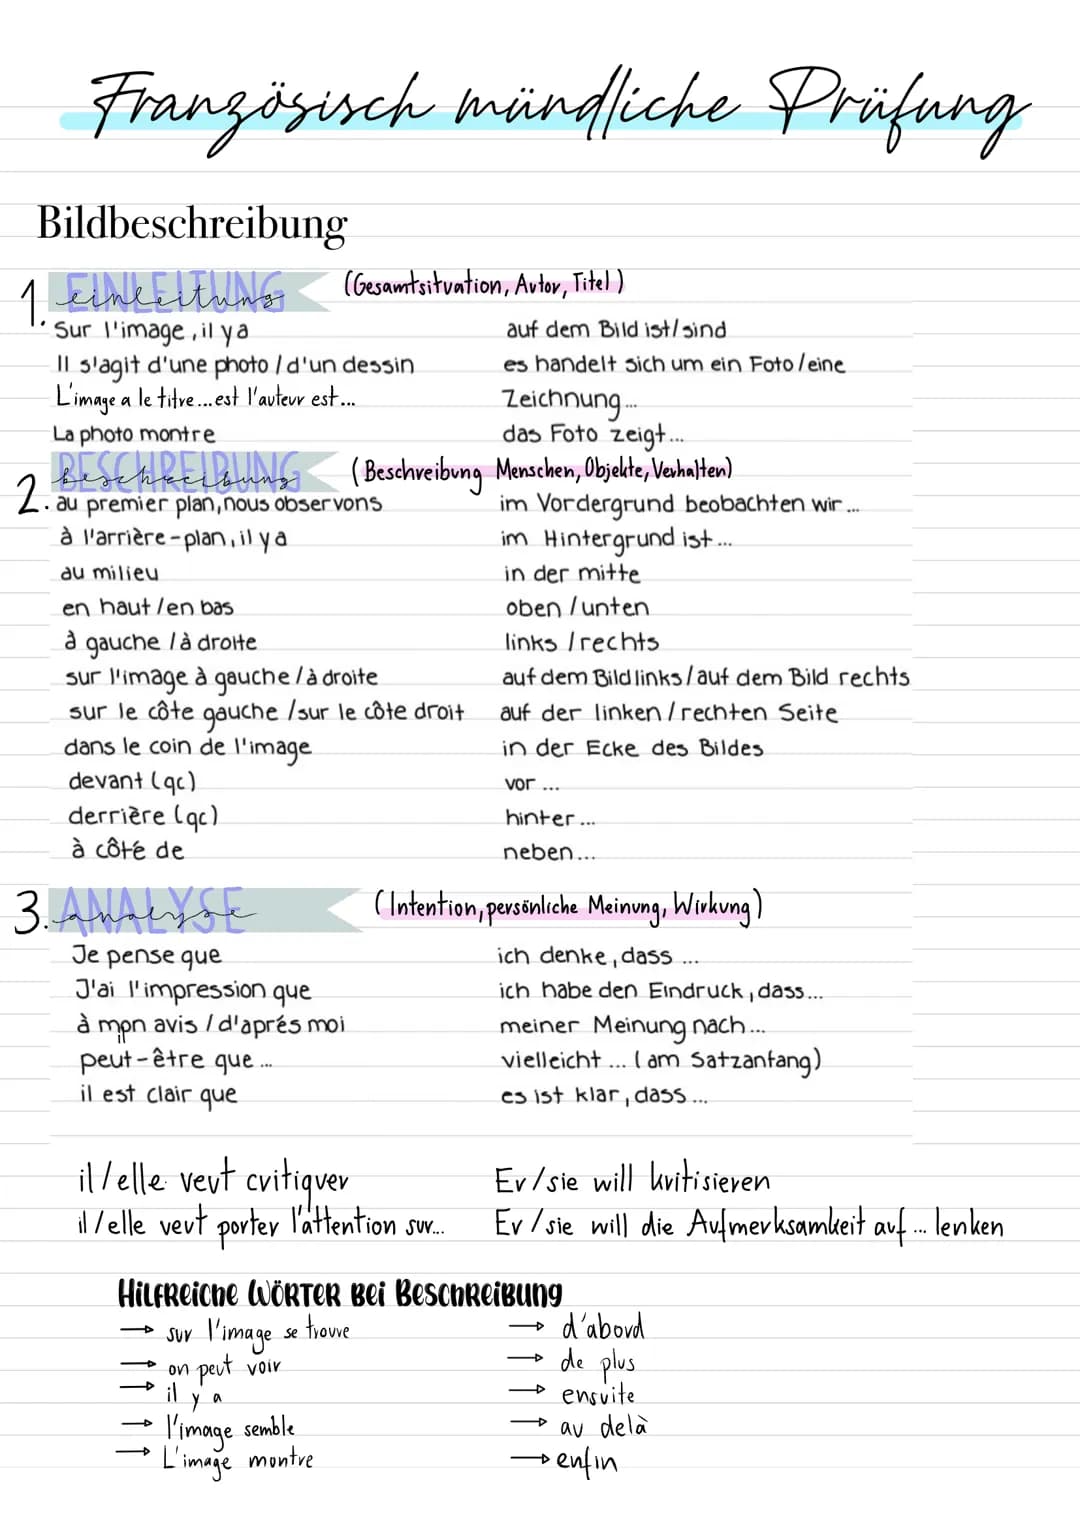 Französisch mündliche Prüfung
Bildbeschreibung
1. EINLEITUNG einleitung (Gesamtsituation, Autor, Titel)
Sur l'image, il y a auf dem Bild ist/sind
Il s'agit d'une photo / d'un dessin es handelt sich um ein Foto/eine
L'image a le titre...est l'auteur est... Zeichnung...
La photo montre das Foto zeigt...
2. BESCHREIBUNG beschreibung (Beschreibung Menschen, Objekte, Verhalten)
au premier plan, nous observons im Vordergrund beobachten wir...
à l'arrière-plan, il y a im Hintergrund ist...
au milieu in der mitte
en haut/en bas oben/unten
à gauche/à droite links/rechts
sur l'image à gauche/à droite auf dem Bild links/auf dem Bild rechts
sur le côte gauche/sur le côte droit auf der linken/rechten Seite
dans le coin de l'image in der Ecke des Bildes
devant (qc) vor...
derrière (qc) hinter...
à côté de neben...
3. ANALYSE analyse (Intention, persönliche Meinung, Wirkung)
Je pense que ich denke, dass...
J'ai l'impression que ich habe den Eindruck, dass...
à mon avis / d'aprés moi meiner Meinung nach...
peut-être que... vielleicht... (am Satzanfang)
il est clair que es ist klar, dass...
il/elle veut critiquer Er/sie will kritisieren
il/elle veut porter l'attention sur... Er/sie will die Aufmerksamkeit auf... lenken
Hilfreiche Wörter bei Beschreibung
→ sur l'image se trouve → d'abord
→ on peut voir → de plus
→ il y a → ensuite
→ l'image semble → au delà
→ L'image montre → enfin